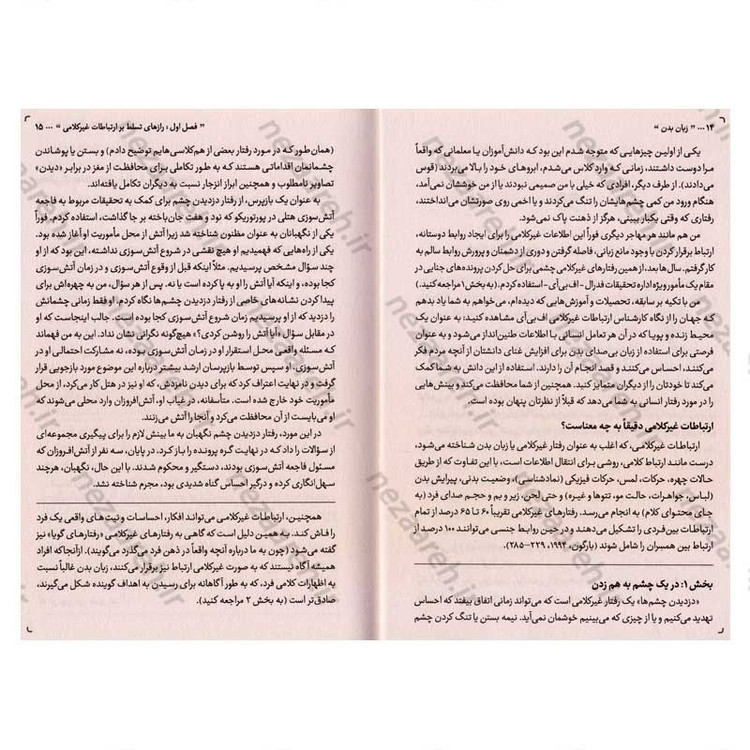 ۱۴ ... " زبان بدن "
یکی از اولین چیزهایی که متوجه شدم این بود که دانش‌آموزان یا معلمانی که واقعاً
مرا دوست داشتند، زمانی که وارد کلاس می‌شدم، ابروهای خود را بالا می‌بردند (قوس
می‌دادند). از طرف دیگر، افرادی که خیلی با من صمیمی نبودند یا از من خوششان نمی‌آمد،
هنگام ورود من کمی چشم‌هایشان را تنگ می‌کردند و یا اخمی روی صورتشان می‌انداختند،
رفتاری که وقتی یکبار ببینی، هرگز از ذهنت پاک نمی‌شود.
من هم مانند هر مهاجر دیگری فوراً این اطلاعات غیرکلامی را برای ایجاد روابط دوستانه،
ارتباط برقرار کردن با وجود مانع زبانی، فاصله گرفتن و دوری از دشمنان و پرورش روابط سالم به
کار گرفتم. سال‌ها بعد، از همین رفتارهای غیرکلامی چشمی برای حل کردن پرونده‌های جنایی در
مقام یک مأمور ویژه اداره تحقیقات فدرال - اف‌بی‌آی - استفاده کردم. (به بخش ۱ مراجعه کنید).
من با تکیه بر سابقه، تحصیلات و آموزش‌هایی که دیده‌ام، می‌خواهم به شما یاد بدهم
که جهان را از نگاه کارشناس ارتباطات غیرکلامی اف‌بی‌آی مشاهده کنید: به عنوان یک
محیط زنده و پویا که در آن هر تعامل انسانی با اطلاعات طنین‌انداز می‌شود و به عنوان
فرصتی برای استفاده از زبان بی‌صدای بدن برای افزایش غنای دانشتان از آنچه مردم فکر
می‌کنند، احساس می‌کنند و قصد انجام آن را دارند. استفاده از این دانش به شما کمک
می‌کند تا خودتان را از دیگران متمایز کنید. همچنین از شما محافظت می‌کند و بینش‌هایی
را در مورد رفتار انسانی به شما می‌دهد که قبلاً از نظرتان پنهان بوده است.
ارتباطات غیرکلامی دقیقاً به چه معناست؟
ارتباطات غیرکلامی، که اغلب به عنوان رفتار غیرکلامی یا زبان بدن شناخته می‌شود،
درست مانند ارتباط کلامی، روشی برای انتقال اطلاعات است، با این تفاوت که از طریق
حالات چهره، حرکات، لمس، حرکات فیزیکی (نمادشناسی)، وضعیت بدنی، پیرایش بدن
(لباس، جواهرات، حالت مو، تتوها و غیره) و حتی لحن، زیر و بم و حجم صدای فرد (به
جای محتوای کلام) به انجام می‌رسد. رفتارهای غیرکلامی تقریباً ۶۰ تا ۶۵ درصد از تمام
ارتباطات بین‌فردی را تشکیل می‌دهند و در حین روابط جنسی می‌توانند ۱۰۰ درصد از
ارتباط بین همسران را شامل شوند (بارگون، ۱۹۹۴، ۲۲۹–۲۸۵).
بخش ۱: در یک چشم به هم زدن
«دزدیدن چشم‌ها» یک رفتار غیرکلامی است که می‌تواند زمانی اتفاق بیفتد که احساس
تهدید می‌کنیم و یا از چیزی که می‌بینیم خوشمان نمی‌آید. نیمه بستن یا تنگ کردن چشم
" فصل اول ؛ رازهای تسلط بر ارتباطات غیرکلامی " ... ۱۵
(همان‌طور که در مورد رفتار بعضی از هم‌کلاسی‌هایم توضیح دادم) و بستن یا پوشاندن
چشمانمان اقداماتی هستند که به طور تکاملی برای محافظت از مغز در برابر «دیدن»
تصاویر نامطلوب و همچنین ابراز انزجار نسبت به دیگران تکامل یافته‌اند.
به عنوان یک بازپرس، از رفتار دزدیدن چشم برای کمک به تحقیقات مربوط به فاجعه
آتش‌سوزی هتلی در پورتوریکو که نود و هفت جان‌باخته بر جا گذاشت، استفاده کردم. فوراً
یکی از نگهبانان به عنوان مظنون شناخته شد زیرا آتش از محل مأموریت او آغاز شده بود.
یکی از راه‌هایی که فهمیدیم او هیچ نقشی در شروع آتش‌سوزی نداشته، این بود که از او
چند سؤال مشخص پرسیدیم. مثلاً اینکه قبل از وقوع آتش‌سوزی و در زمان آتش‌سوزی
کجا بوده، و اینکه آیا آتش را او به پا کرده است یا نه. پس از هر سؤال، من به چهره‌اش برای
پیدا کردن نشانه‌های خاصی از رفتار دزدیدن چشم‌ها نگاه کردم. او فقط زمانی چشمانش
را دزدید که از او پرسیدیم زمان شروع آتش‌سوزی کجا بوده است. جالب اینجاست که او
در مقابل سؤال «آیا آتش را روشن کردی؟» هیچ‌گونه نگرانی نشان نداد. این به من فهماند
که مسئله واقعی محل استقرار او در زمان آتش‌سوزی بوده، نه مشارکت احتمالی او در
آتش‌سوزی. او سپس توسط بازپرسان ارشد بیشتر درباره این موضوع مورد بازجویی قرار
گرفت و در نهایت اعتراف کرد که برای دیدن نامزدش، که او نیز در هتل کار می‌کرد، از محل
مأموریت خود خارج شده است. متأسفانه، در غیاب او، آتش‌افروزان وارد محلی می‌شوند که
او می‌بایست از آن محافظت می‌کرد و آنجا را آتش می‌زنند.
در این مورد، رفتار دزدیدن چشم نگهبان به ما بینش لازم را برای پیگیری مجموعه‌ای
از سؤالات را داد که در نهایت گره پرونده را باز کرد. در پایان، سه نفر از آتش‌افروزان که
مسئول فاجعه آتش‌سوزی بودند، دستگیر و محکوم شدند. با این حال، نگهبان، هرچند
سهل‌انگاری کرده و درگیر احساس گناه شدیدی بود، مجرم شناخته نشد.
همچنین، ارتباطات غیرکلامی می‌تواند افکار، احساسات و نیت‌های واقعی یک فرد
را فاش کند. به همین دلیل است که گاهی به رفتارهای غیرکلامی، «رفتارهای گویا» نیز
گفته می‌شود (چون به ما درباره آنچه واقعاً در ذهن فرد می‌گذرد می‌گویند). ازآنجاکه افراد
همیشه آگاه نیستند که به صورت غیرکلامی ارتباط نیز برقرار می‌کنند، زبان بدن غالباً نسبت
به اظهارات کلامی فرد، که به طور آگاهانه برای رسیدن به اهداف گوینده شکل می‌گیرند،
صادق‌تر است (به بخش ۲ مراجعه کنید).
nezareh.ir